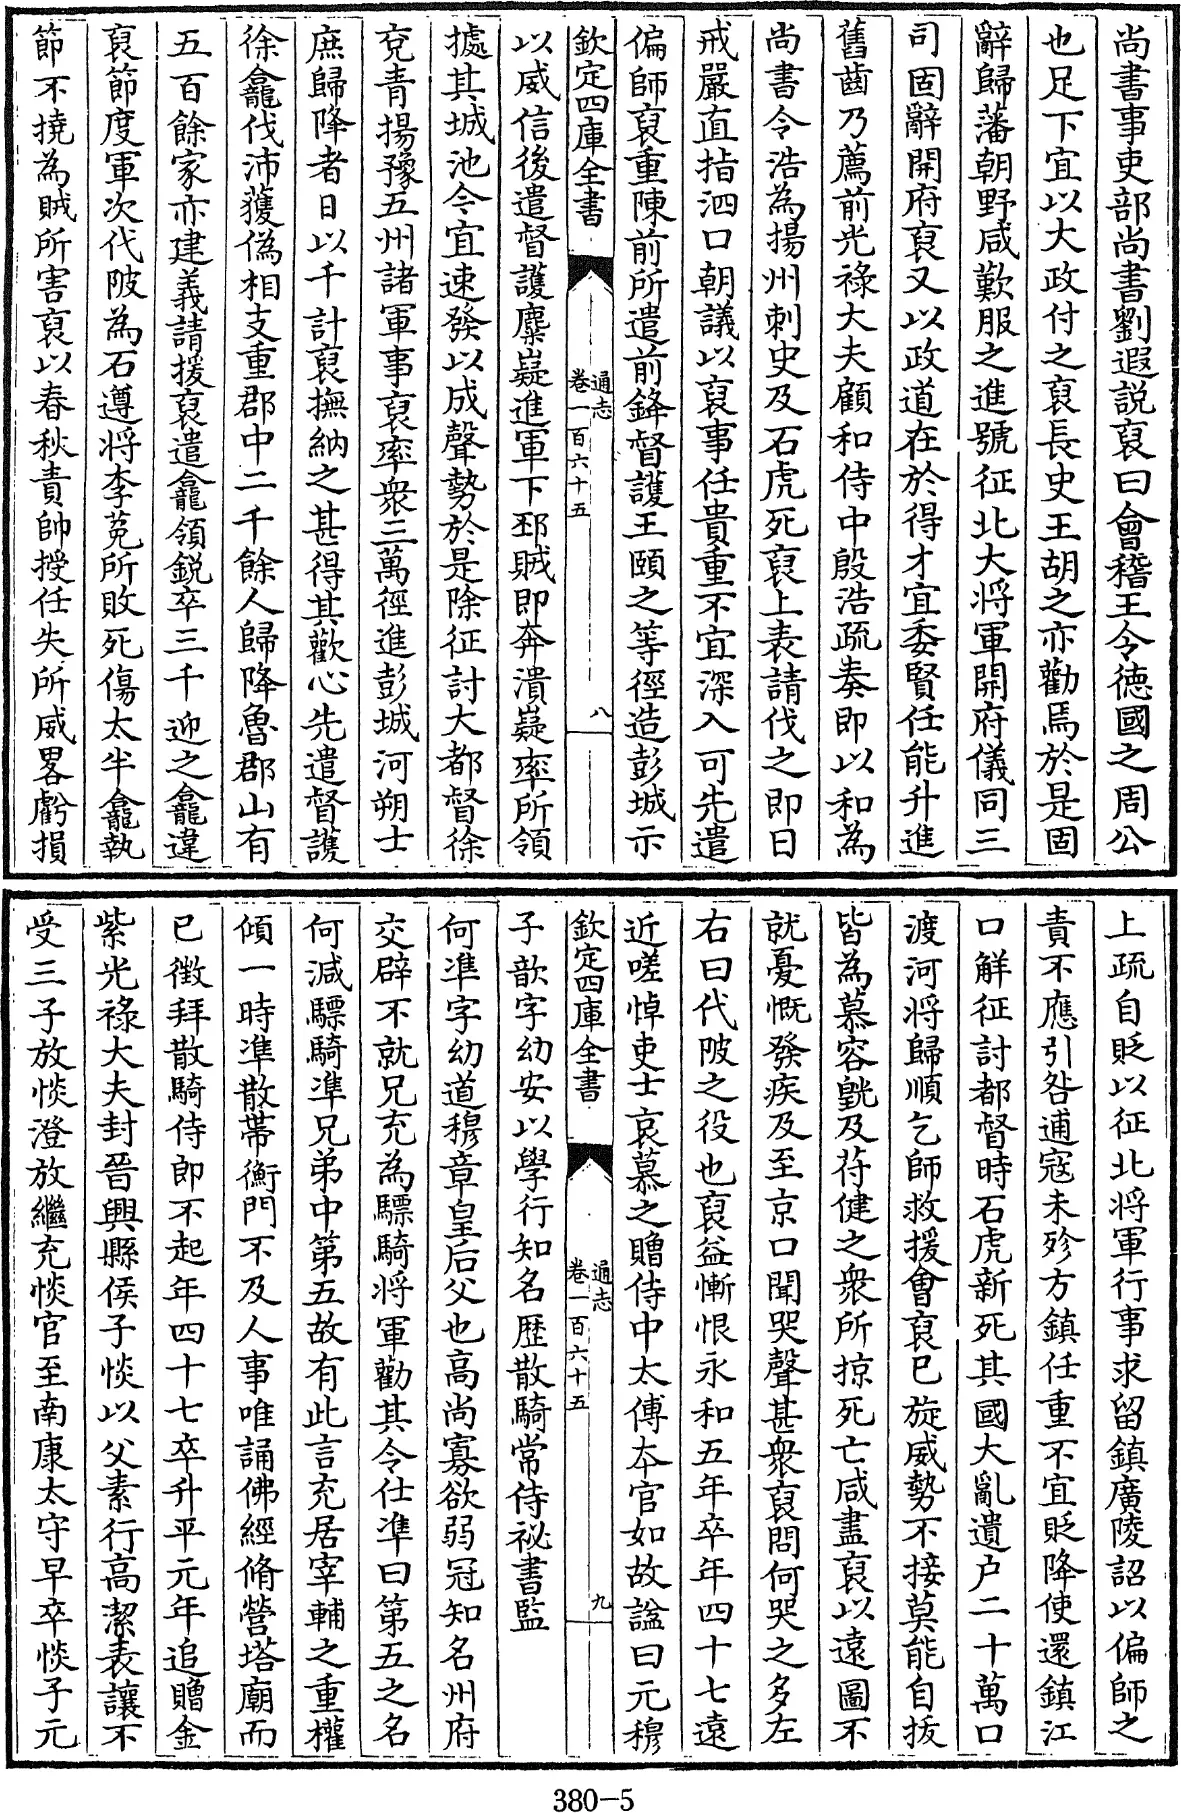 尚書事吏部尚書劉遐說裒曰會稽王令德國之周公
也足下宜以大政付之裒長史王胡之亦勸焉於是固
辭歸藩朝野咸歎服之進號征北大將軍開府儀同三
司固辭開府裒又以政道在於得才宜委賢任能升進
舊齒乃薦前光祿大夫顧和侍中殷浩疏奏即以和為
尚書令浩為揚州刺史及石虎死裒上表請伐之即日
戒嚴直指泗口朝議以裒事任貴重不宜深入可先遣
偏師裒重陳前所遣前鋒督護王頤之等徑造彭城示
欽定四庫全書
通志
卷一百六十五
八
以威信後遣督護麋嶷進軍下邳賊即奔潰嶷率所領
據其城池今宜速發以成聲勢於是除征討大都督徐
兗青揚豫五州諸軍事裒率衆三萬徑進彭城河朔士
庶歸降者日以千計裒撫納之甚得其歡心先遣督護
徐龕伐沛獲偽相支重郡中二千餘人歸降魯郡山有
五百餘家亦建義請援裒遣龕領銳卒三千迎之龕違
裒節度軍次代陂為石遵將李菟所敗死傷太半龕執
節不撓為賊所害裒以春秋責帥授任失所威畧虧損
上疏自貶以征北將軍行事求留鎮廣陵詔以偏師之
責不應引咎逋寇未殄方鎮任重不宜貶降使還鎮江
口解征討都督時石虎新死其國大亂遺户二十萬口
渡河將歸順乞師救援會裒已旋威勢不接莫能自拔
皆為慕容皝及苻健之衆所掠死亡咸盡裒以遠圖不
就憂慨發疾及至京口聞哭聲甚衆裒問何哭之多左
右曰代陂之役也裒益慚恨永和五年卒年四十七遠
近嗟悼吏士哀慕之贈侍中太傅本官如故諡曰元穆
欽定四庫全書
通志
卷一百六十五
九
子歆字幼安以學行知名歷散騎常侍祕書監
何準字幼道穆章皇后父也高尚寡欲弱冠知名州府
交辟不就兄充為驃騎將軍勸其令仕準曰第五之名
何減驃騎準兄弟中第五故有此言充居宰輔之重權
傾一時準散帶衡門不及人事唯誦佛經脩營塔廟而
已徵拜散騎侍郎不起年四十七卒升平元年追贈金
紫光祿大夫封晉興縣侯子惔以父素行高潔表讓不
受三子放惔澄放繼充惔官至南康太守早卒惔子元
380-5